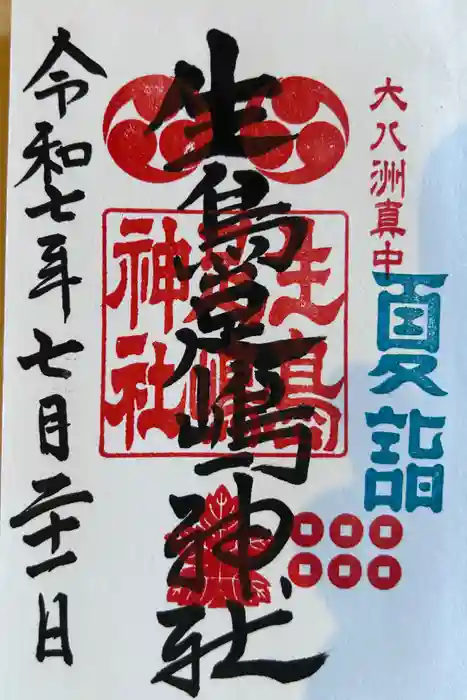 大八洲真中
夏詣
生島足嶋神社
生島
足嶋
神社
令和七年七月二十一日